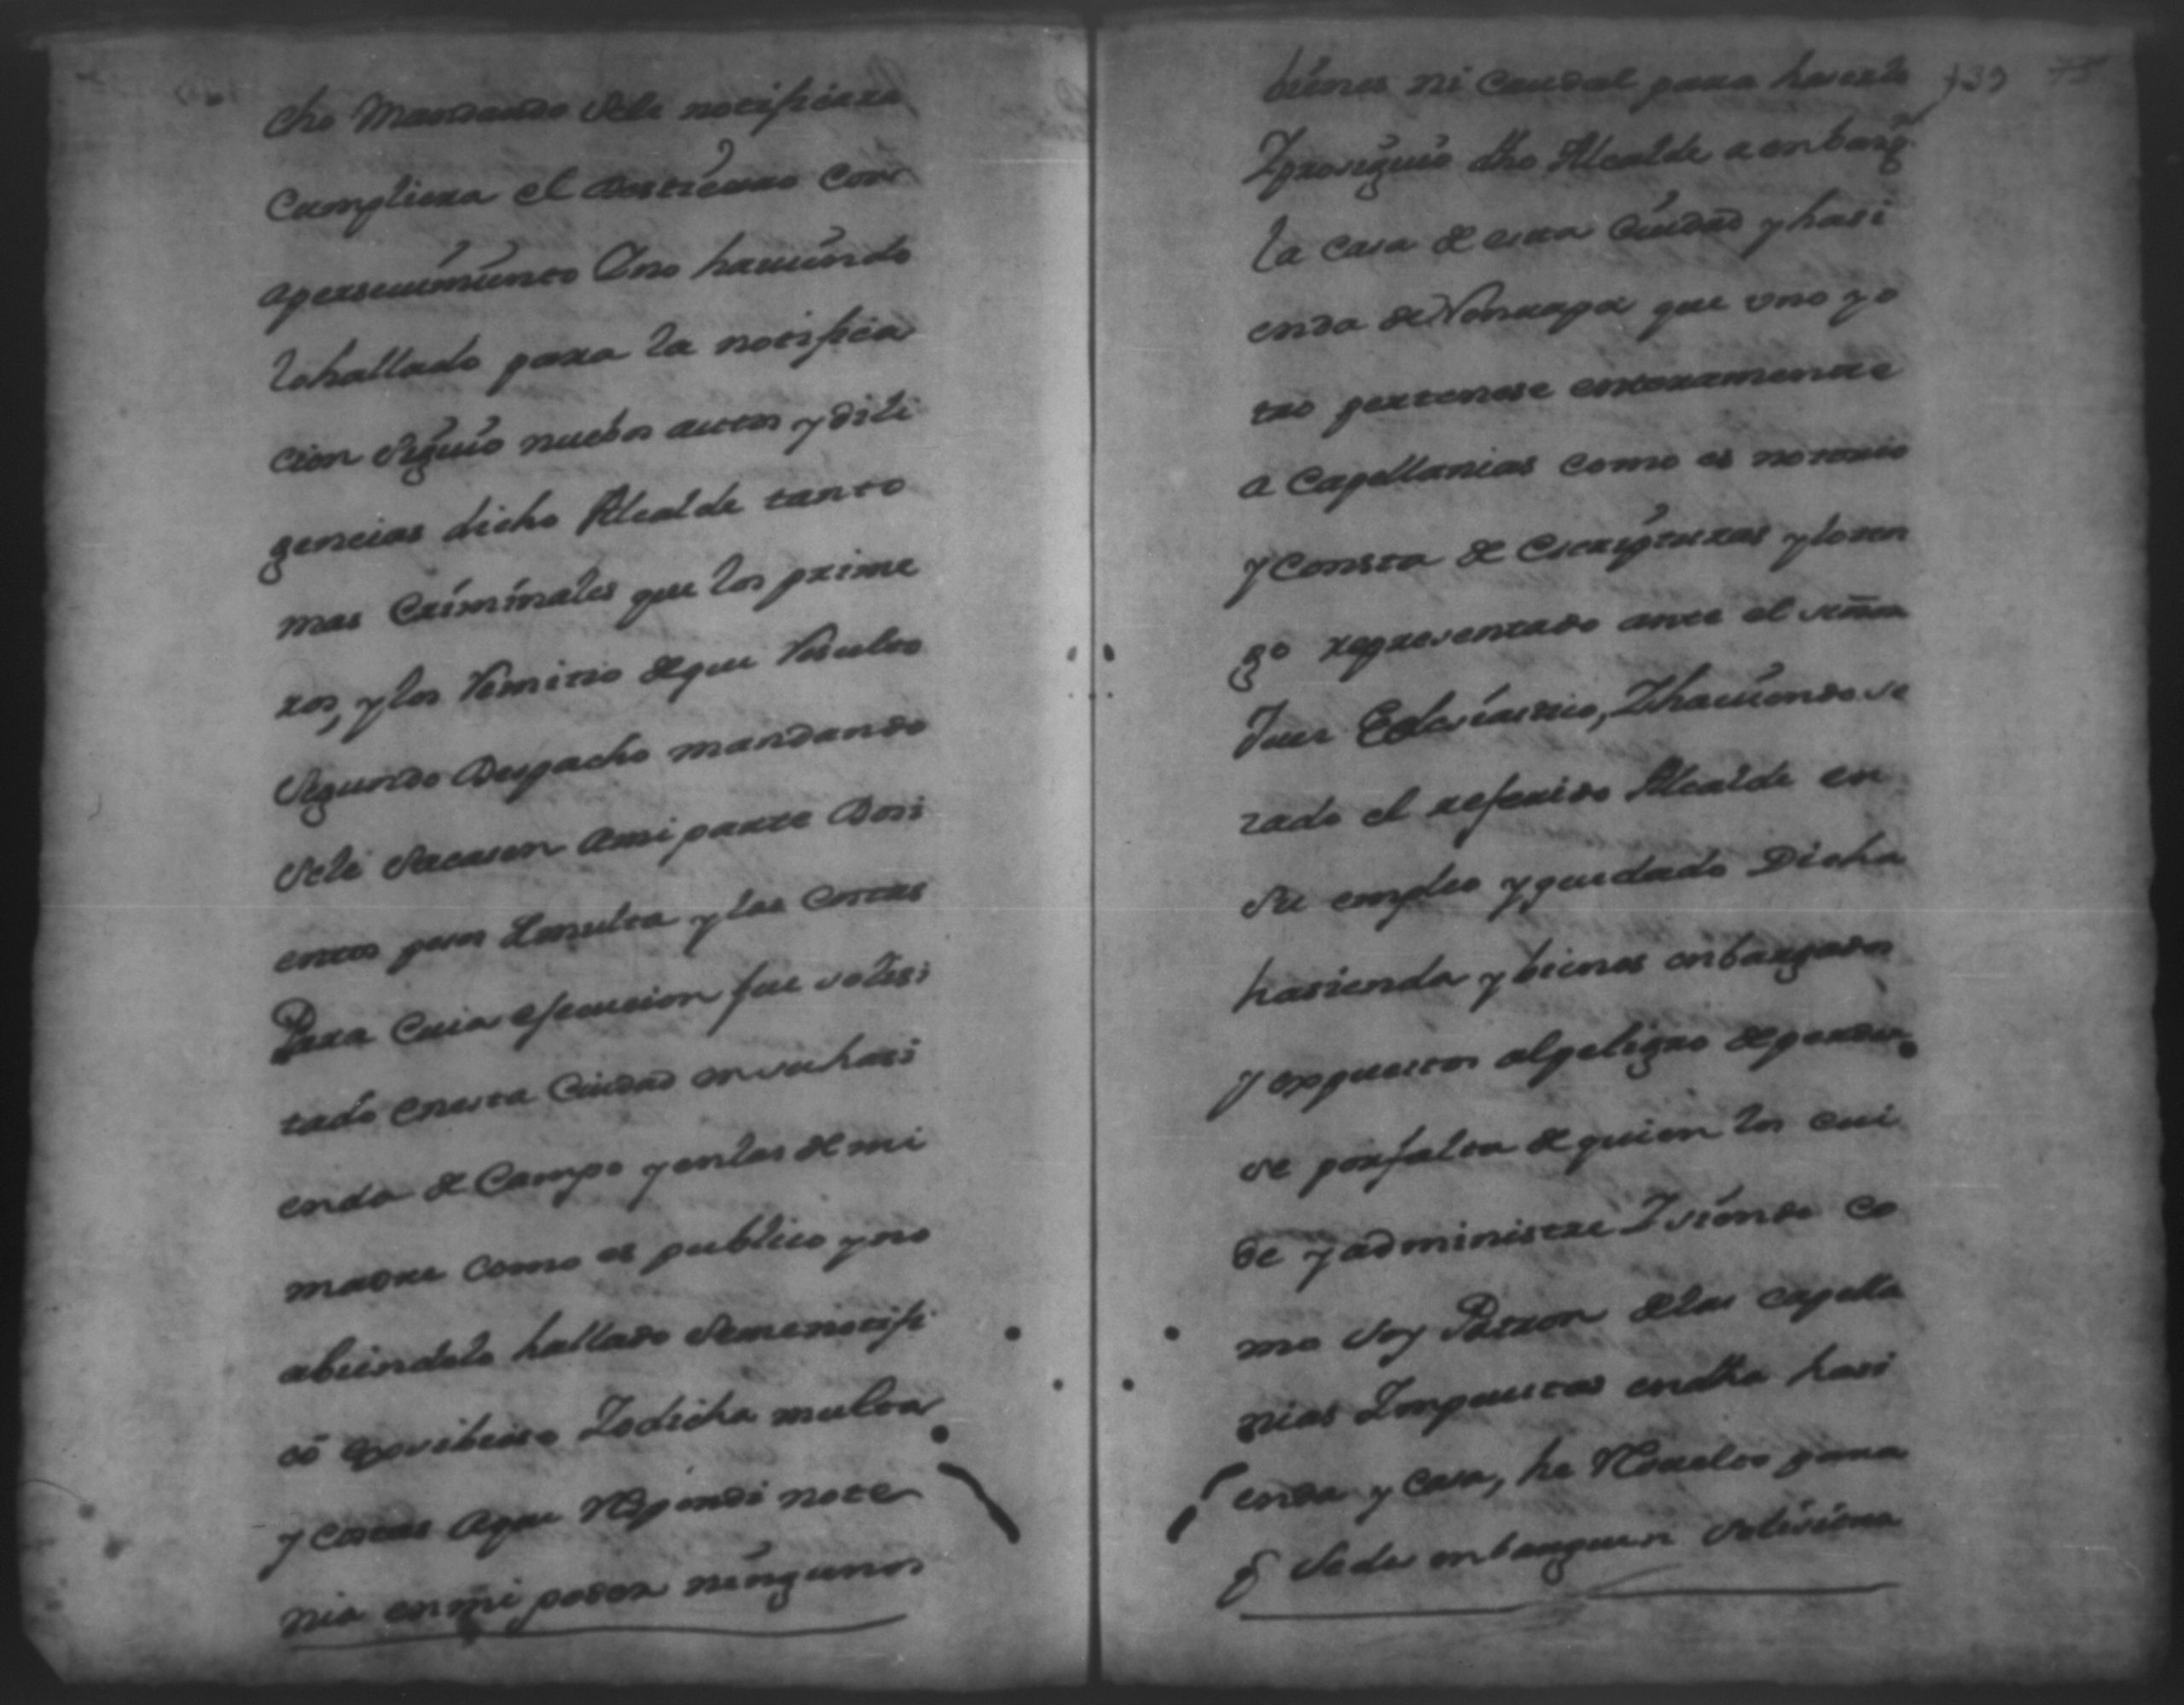 cho Mandando Sele notificara
Cumpliera el destierro con
apersevimiento Ino haviendo
lo hallado para la notifica
cion Siguio nuebos autos y dili
gencias dicho Alcalde tanto
mas Criminales que los prime
ros, y los Remitio de que Resulto
Segundo Despacho mandando
Sele Sacasen ami parte Dosi
entos pesos demulta y las Costas
Para Cuia efecucion fue solisi
tado enesta Ciudad en su hasi
enda de Campo y en las de mi
madre como es publico y no
abiendolo hallado Seme notifi
có Todicha multa
y Costas aque Respondi note
nia en mi poder ningunos
bienes ni Caudal para haserlo 139
I prosiguio dho Alcalde a enbarg
la casa de esta Ciudad y hasi
enda de que uno y o
tro pertenese enteramente
a Capellanias como es notorio
y Consta de Escripturas y loten
go representado ante el señor
Jues Eclesiastico, I haviendo se
sado el referido Alcalde en
Su empleo y quedado Dicha
hasienda y bienes enbargados
y expuestos al peligro de perder
se por falta de quien los cui
de y administre I siendo co
mo Soy Patron de las capella
nias Impuestas en dha hasi
enda y Casa, he Resuelto para
q Se des enbarguen